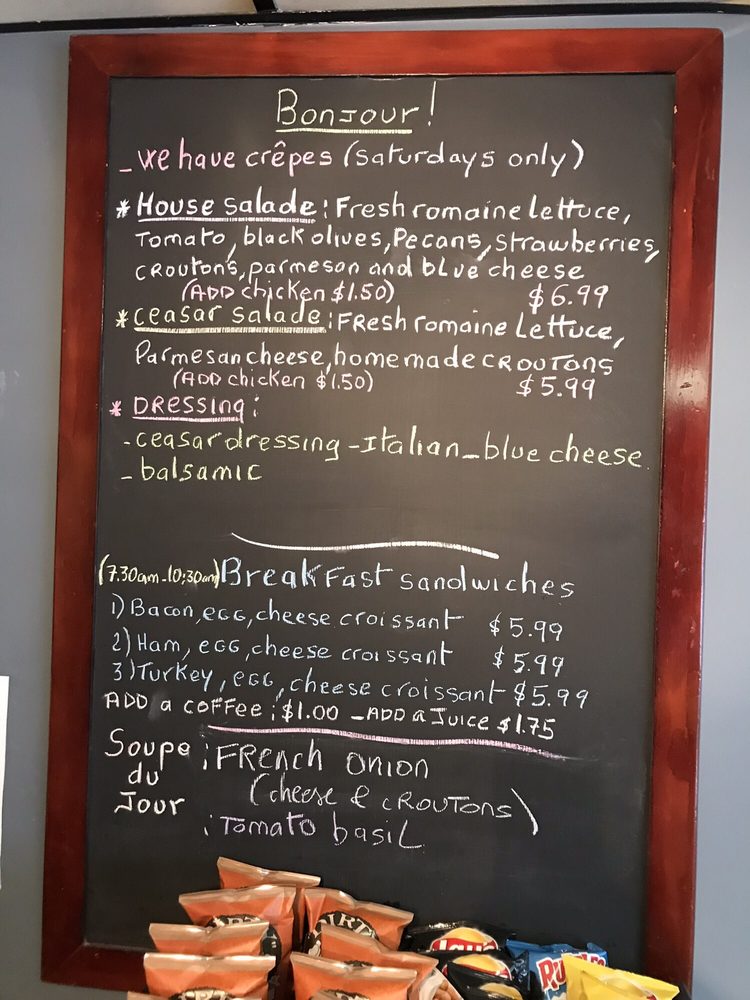 Bonjour!
- we have crêpes (Saturdays only)
* House salade: Fresh romaine lettuce,
Tomato, black olives, Pecans, strawberries,
croutons, parmeson and blue cheese
(ADD chicken $1.50) $6.99
* ceasar salade: Fresh romaine Lettuce,
Parmesan cheese, homemade croutons
(ADD chicken $1.50) $5.99
* Dressing:
- ceasar dressing - Italian - blue cheese
- balsamic
(7.30am - 10:30am) Breakfast sandwiches
1) Bacon, egg, cheese croissant $5.99
2) Ham, egg, cheese croissant $5.99
3) Turkey, egg, cheese croissant $5.99
ADD a coffee: $1.00 - ADD a Juice $1.75
Soupe du Jour : French onion
(cheese & croutons)
: Tomato basil
Lay's